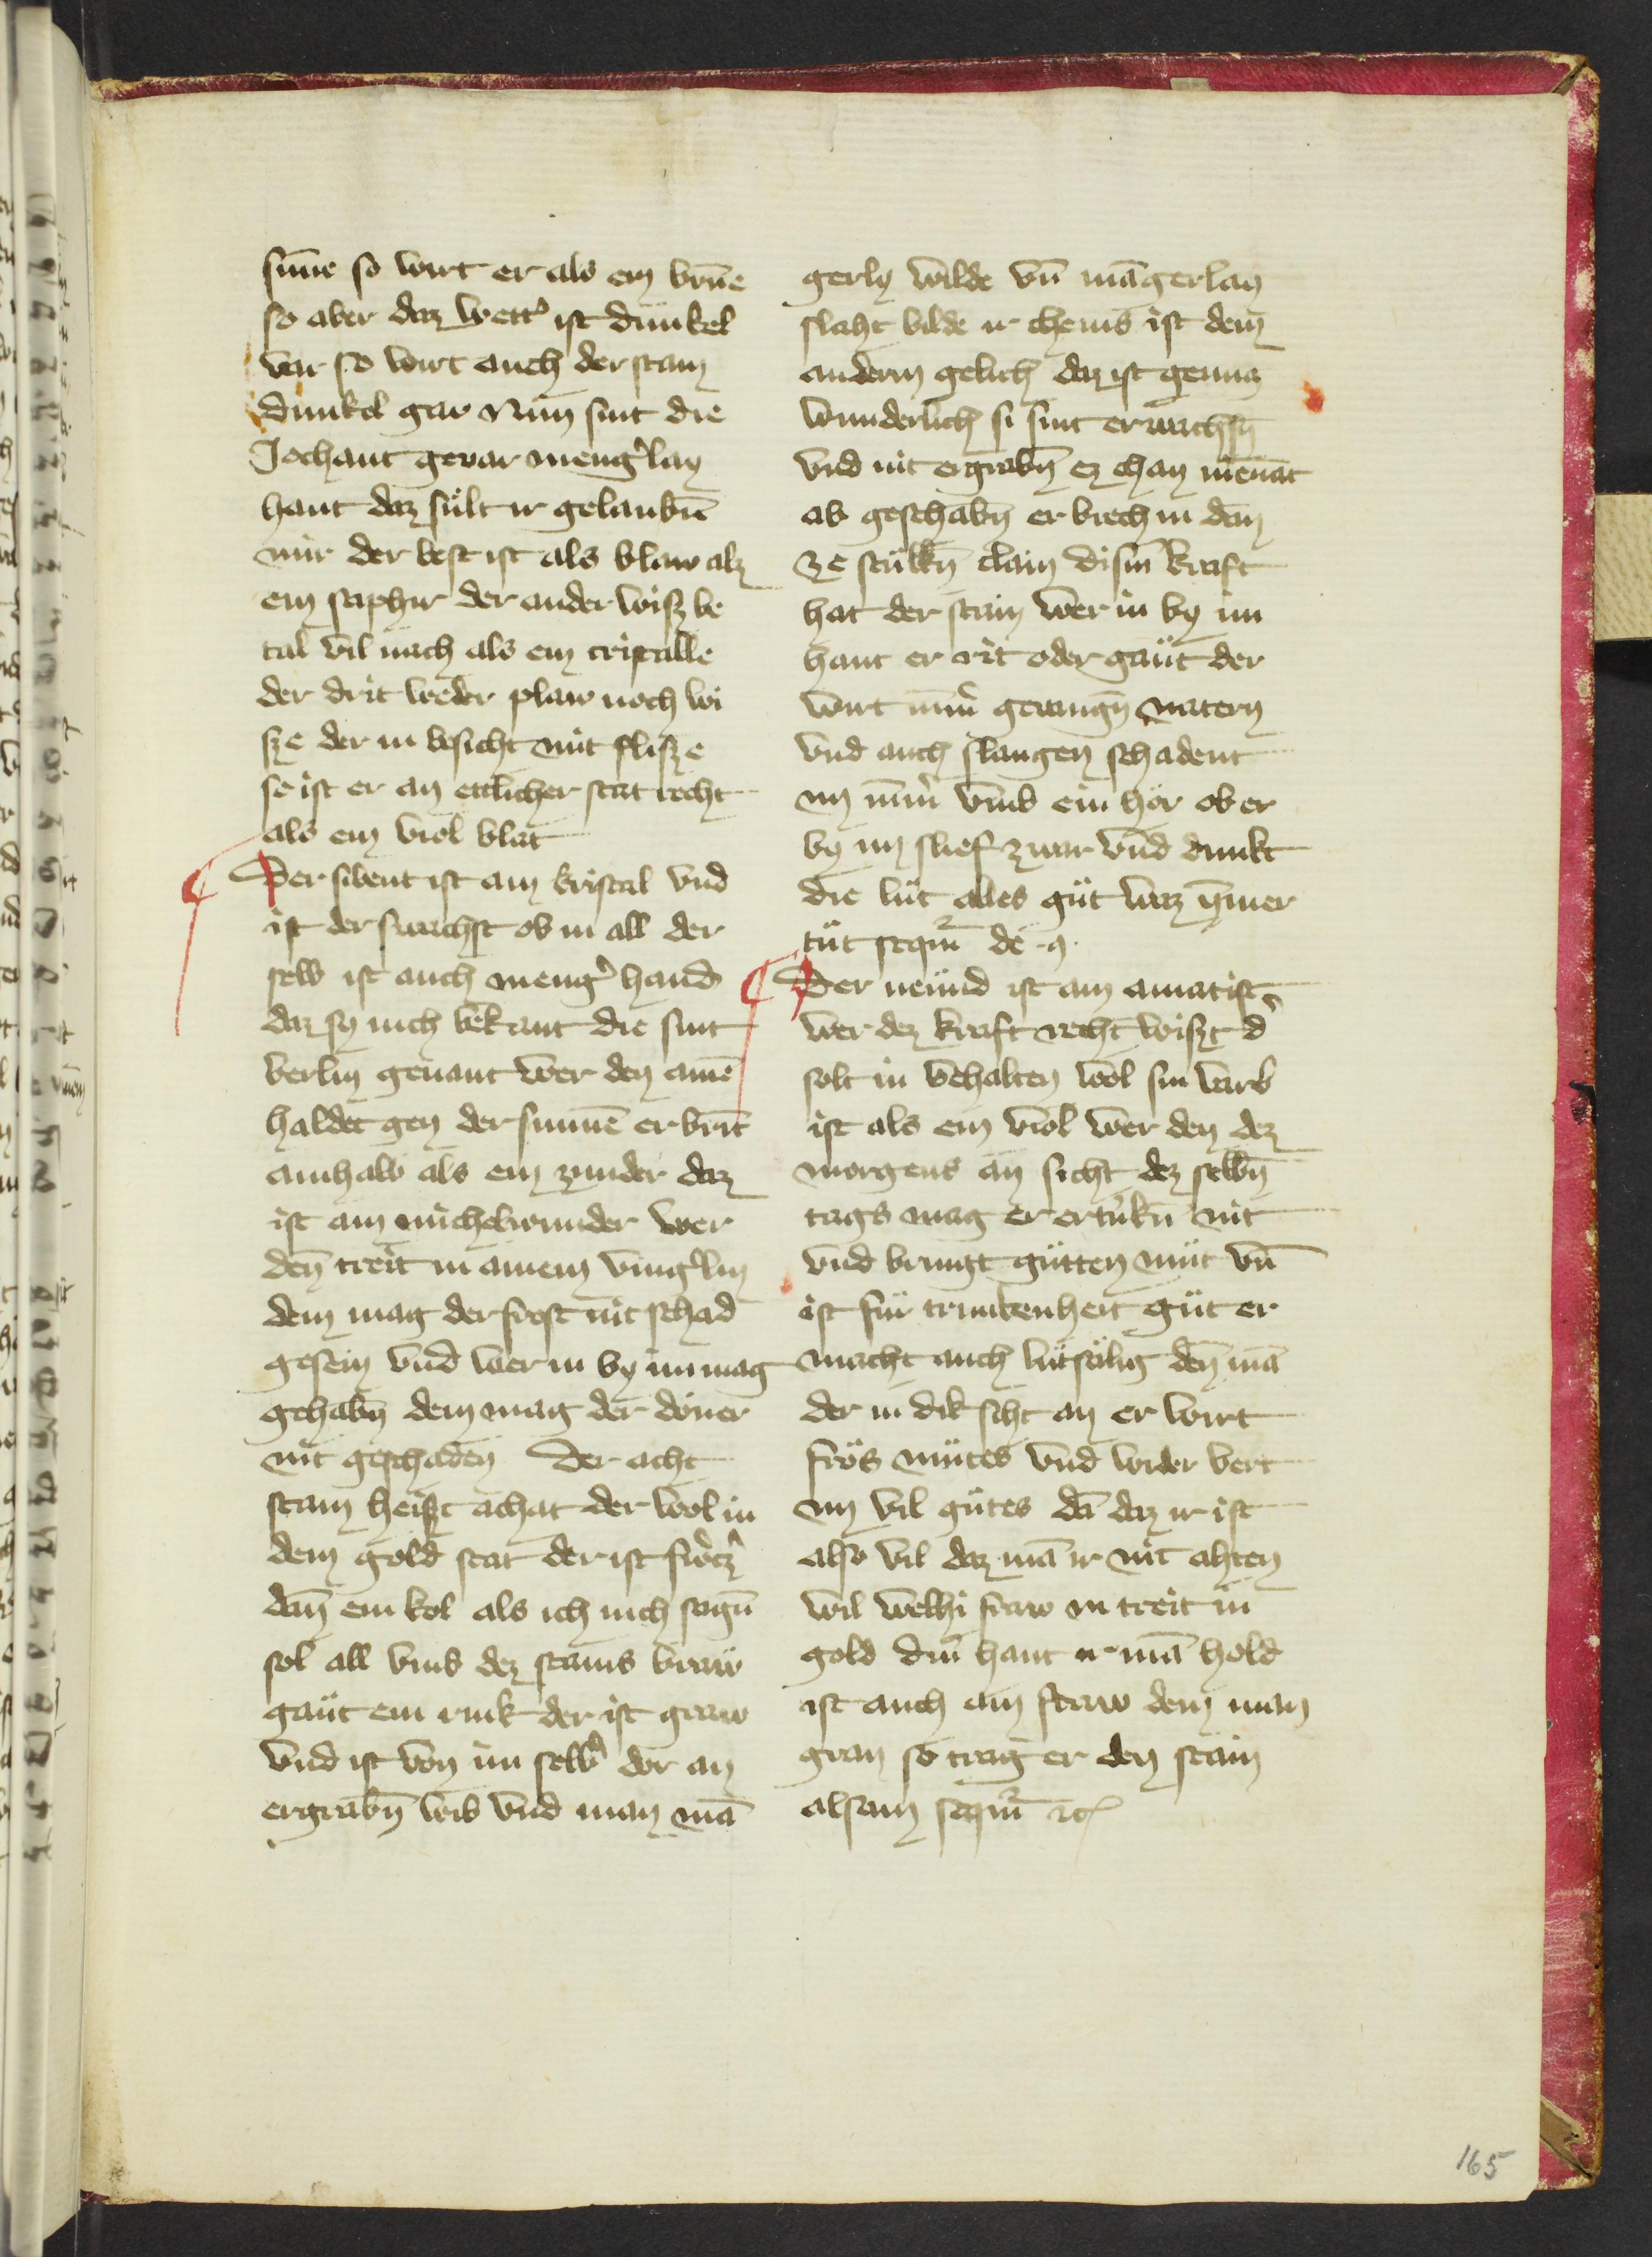 sunne so wirt er als ein brūe
so aber daz wett᷑ ist dunkel
var so wirt auch der stain
dunkel gar Nun sint die
Jochant gevar meng᷑lay
hant daz sült ir gelaubn̄
mir der best ist als blaw alz
ein saphir der ander wisz be
tal vil nach als ein cristalle
der drit weder plaw noch wi
sze der in besicht mit flisze
so ist er an ettlicher stat recht
als ein viol blat
Der sibent ist ain kristal vnd
ist der swachst ob in all der
selb ist auch meng᷑ hand
daz sy uich bekant die sint
berlin genant wer den ainē
haldet gen der sunnē er brīt
ainhalb als ein zunder daz
ist ain michelwunder wer
den treit in ainem ving᷑lin
dem mag der frost nit schad
gesein vnd wer in by im mag
gehabn̄ dem mag der doner
nit geschaden Der acht
stain heiszt achat der wol in
dem gold stat der ist swörcz᷑
dan ein kol als ich uich sagn̄
sol all vmb dez stains braw
gaüt ein rink der ist graw
vnd ist von im selb᷑ dor an
ergrabn̄ wib vnd man mā
gerlay wilde vn̄ māgerlay
slaht bilde ir chains ist dem
andern gelich daz ist genug
wunderlich si sint erwachsn̄
vnd nit ergrabn̄ ez chan niemāt
ab geschabn̄ er brech in dan
ze stukkn̄ clain disiu kraft
hat der stain wer in by im
hant er rit oder gaüt der
wirt nim̄᷑ gevangn̄ natern
vnd auch slangen schadent
im nim̄᷑ vmb ein hor ob er
by im slief zwar vnd dunkt
die lüt alles güt waz ym̄er
tüt sequit᷑ de .9.
Der neünd ist ain amatist
wer dez kraft recht wiszt d᷑
solt in behalten wol sin varb
ist als ein viol wer den dez
morgens an sicht dez selbn̄
tags mag er ertrikn̄ nit
vnd bringt gütten müt vn̄
ist für trunkenheit güt er
macht auch lütsälig den mā
der in dik siht an er wirt
frös mütes vnd wider vert
im vil gütes dā daz ir ist
also vil daz mā ir nit ahten
wil welhi fraw in treit in
gold diu hant ir mā hold
ist auch ain fraw dem man
gran so trag er den stain
alsam sequit᷑ ꝛc
165